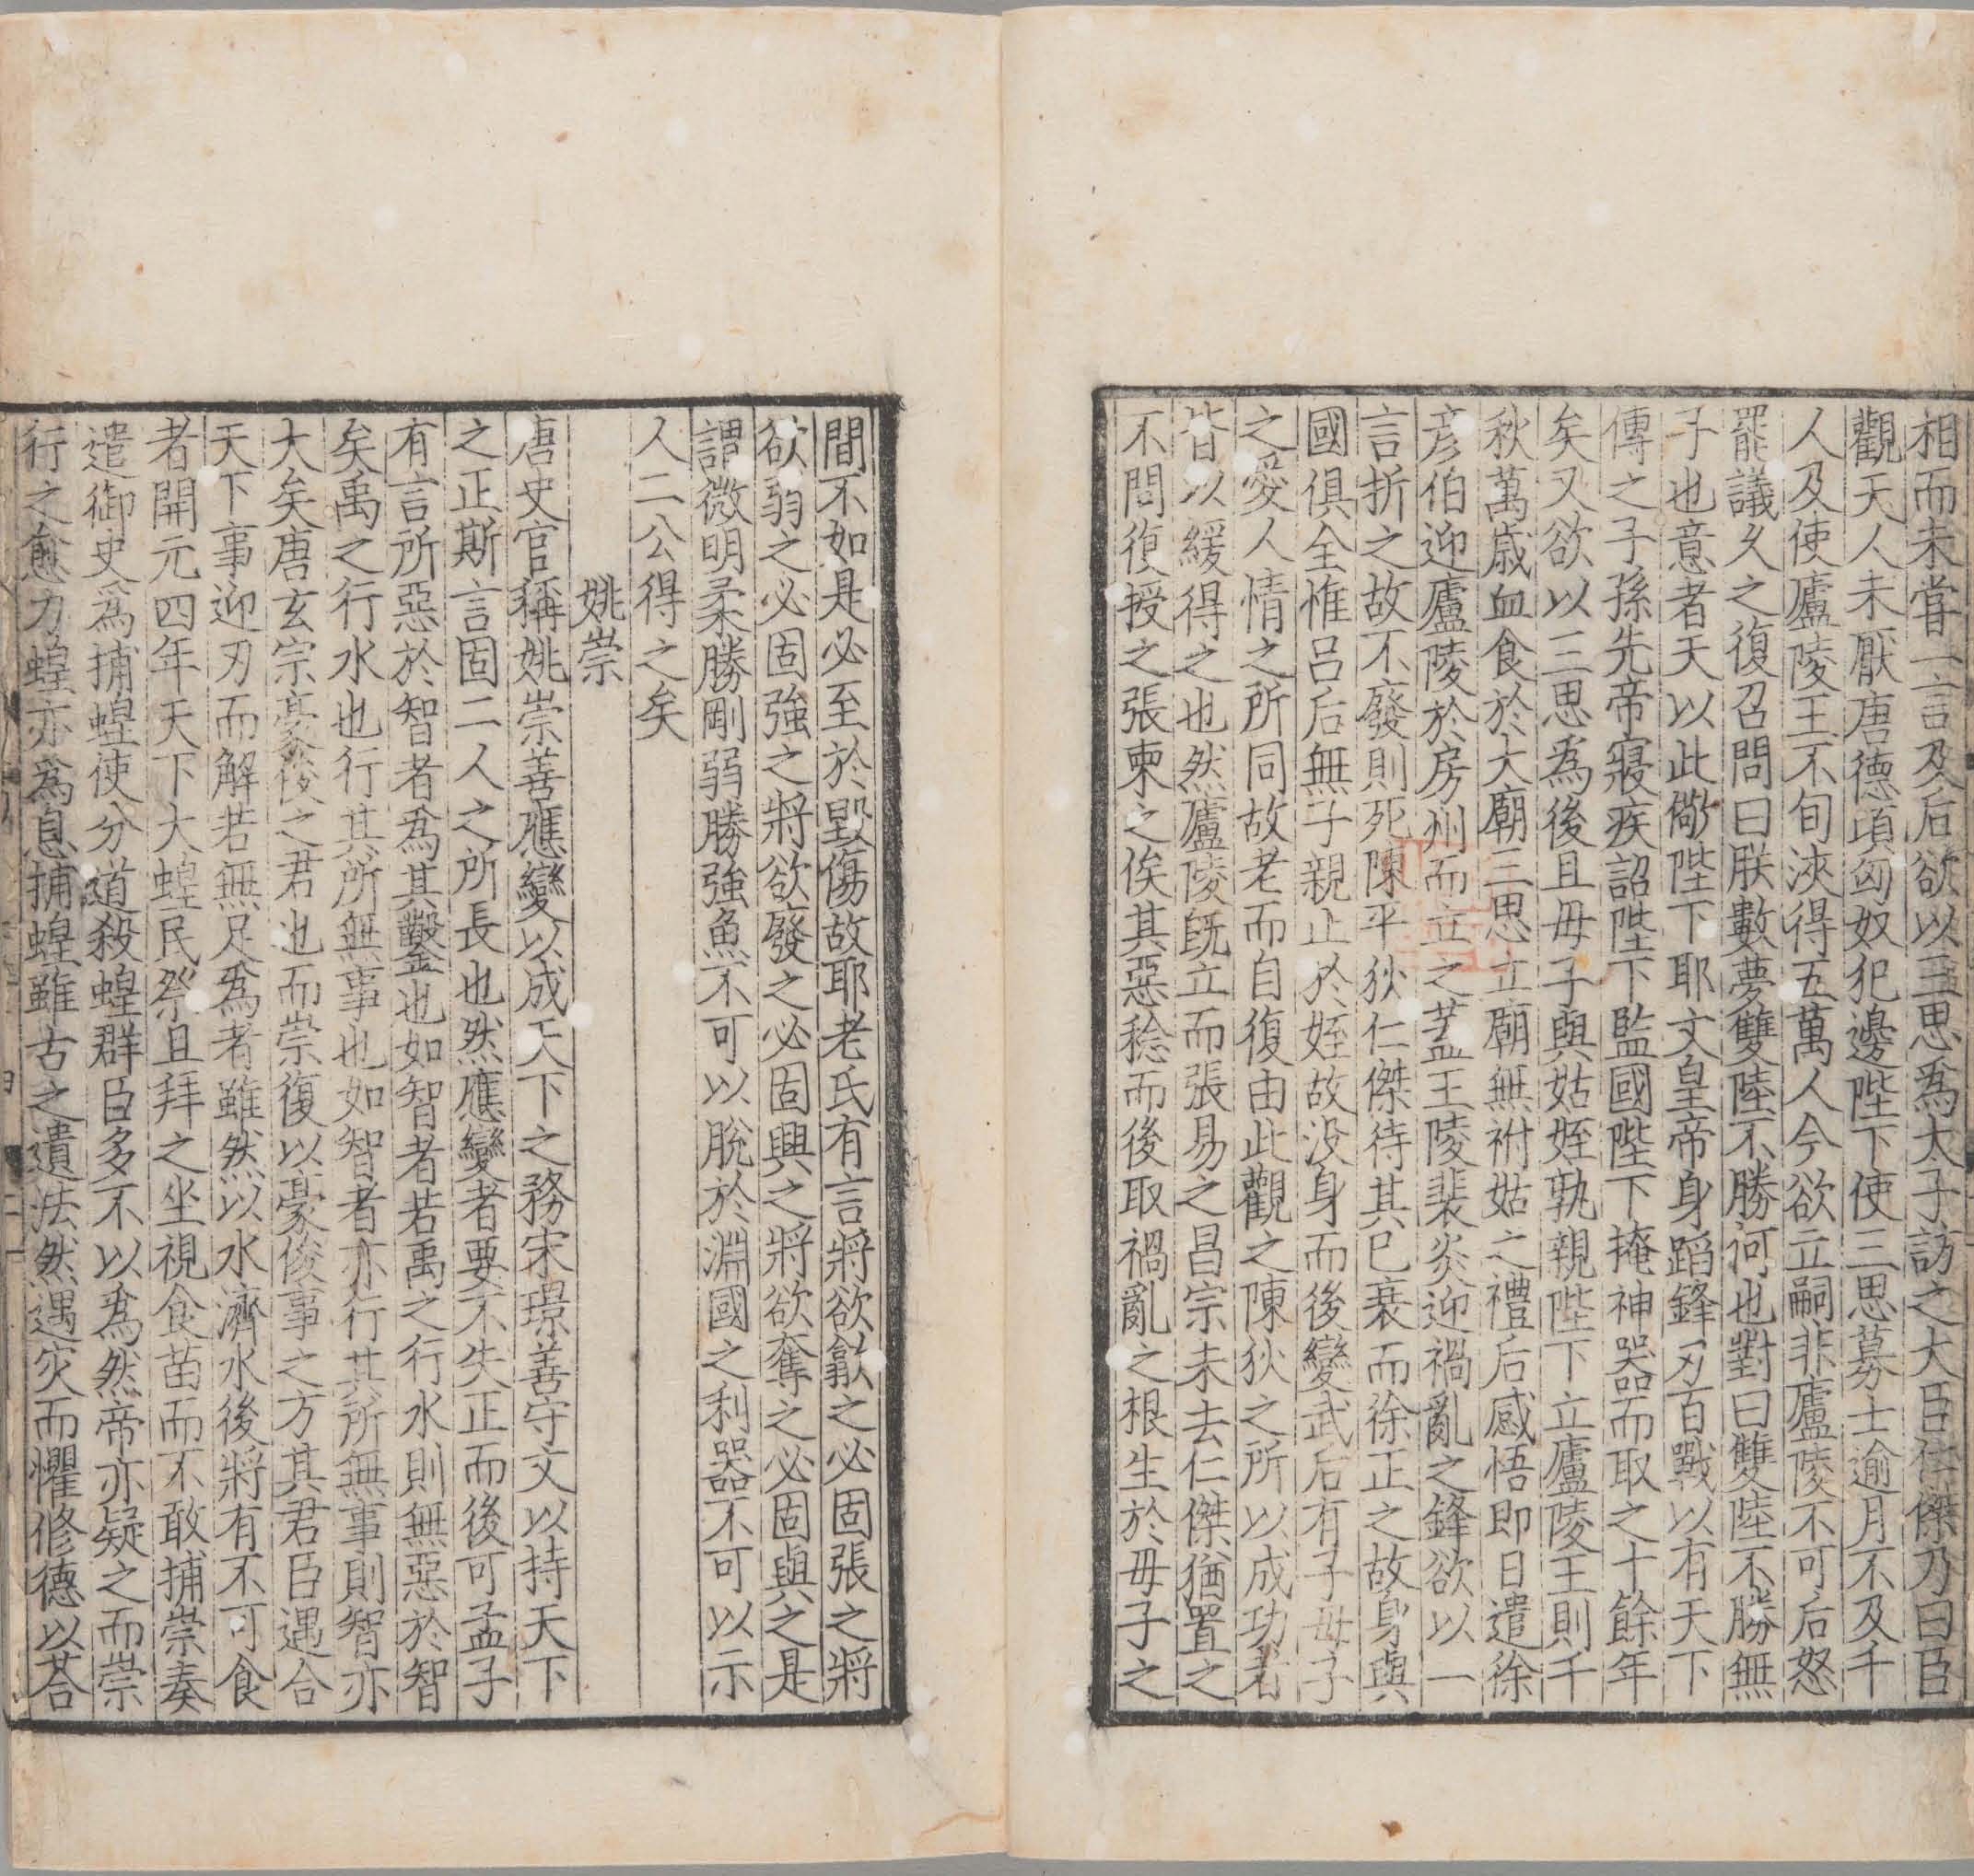 相而未嘗一言及后欲以三思爲太子訪之大臣仁傑乃曰臣
觀天人未厭唐德頃匈奴犯邊陛下使三思募士逾月不及千
人及使廬陵王不旬浹得五萬人今欲立嗣非廬陵不可后怒
罷議久之復召問曰朕數夢雙陸不勝何也對曰雙陸不勝無
子也意者天以此儆陛下耶文皇帝身蹈鋒刃百戰以有天下
傳之子孫先帝寢疾詔陛下監國陛下掩神器而取之十餘年
矣又欲以三思爲後且毋子與姑姪孰親陛下立廬陵王則千
秋萬歲血食於大廟三思立廟無祔姑之禮后感悟即日遣徐
彦伯迎廬陵於房州而立之蓋王陵裴炎迎禍亂之鋒欲以一
言折之故不廢則死陳平狄仁傑待其已衰而徐正之故身與
國俱全惟呂后無子親止於姪故没身而後變武后有子毋子
之愛人情之所同故老而自復由此觀之陳狄之所以成功者
皆以緩得之也然廬陵旣立而張易之昌宗未去仁傑猶置之
不問復授之張柬之俟其惡稔而後取禍亂之根生於毋子之
間不如是必至於毀傷故耶老氏有言將欲歙之必固張之將
欲弱之必固強之將欲廢之必固興之將欲奪之必固與之是
謂微明柔勝剛弱勝強魚不可以脫於淵國之利器不可以示
人二公得之矣
姚崇
唐史官稱姚崇善應變以成天下之務宋璟善守文以持天下
之正斯言固二人之所長也然應變者要不失正而後可孟子
有言所惡於智者爲其鑿也如智者若禹之行水則無惡於智
矣禹之行水也行其所無事也如智者亦行其所無事則智亦
大矣唐玄宗豪俊之君也而崇復以豪俊事之方其君臣遇合
天下事迎刃而解若無足爲者雖然以水濟水後將有不可食
者開元四年天下大蝗民祭且拜之坐視食苗而不敢捕崇奏
遣御史爲捕蝗使分道殺蝗群臣多不以爲然帝亦疑之而崇
行之愈力蝗亦爲息捕蝗雖古之遺法然遇灾而懼修德以荅